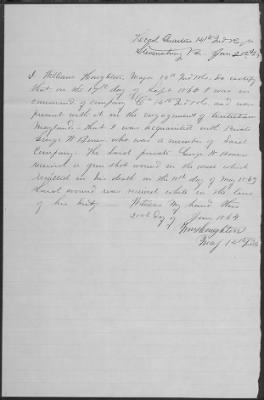 Head Quarters 14th Ind Vols
Stevensburg Va Jan 21st
I William Houghton Major 14th Ind Vols do certify
that on the 17th day of Sept 1862 I was in
command of company "C" 14th Ind Vols and was
present with it in the engagement of Antietam
Maryland – that I was acquainted with Private
George W who was a member of said
Company. The said private George W
received a gun shot wound in the which
resulted in his death on the day of May 1863
Said wound was received while in the line
of his duty Witness My hand this
21st day of Jany 1864
Wm Houghton
Maj 14th Ind